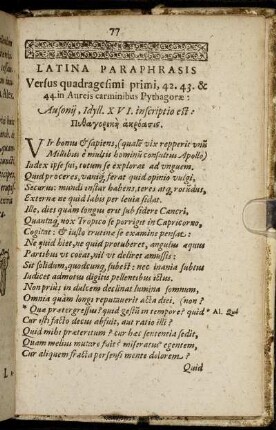 77
LATINA PARAPHRASIS
Versus quadragesimi primi, 42. 43. &
44. in Aureis carminibus Pythagoræ:
Ausonij, Idyll. XVI. inscriptio est:
Πυθαγορικὴ ἀκρόασις.
VIr bonus & sapiens, (qualē vix repperit vnū
Milibus è multis hominū consultus Apollo)
Iudex ipse sui, totum se explorat ad vnguem.
Quid proceres, vaniq; ferat quid opinio vulgi,
Securus: mundi instar habens, teres atq; rotūdus,
Externæ ne quid labis per leuia sidat.
Ille, dies quàm longus erit sub sidere Cancri,
Quantaq; nox Tropico se porrigit in Capricorno,
Cogitat: & iusto trutina se examine pensat:
Ne quid hiet, ne quid protuberet, angulus æquis
Partibus vt coeat, nil vt deliret amussis:
Sit solidum, quodcunq; subest: nec inania subtus
Indicet admotus digitis pellentibus ictus,
Non priùs in dulcem declinat lumina somnum,
Omnia quàm longi reputauerit acta diei. (non?
* Quæ prætergressus? quid gestū in tempore? quid * Al. Qui
Cur isti facto decus abfuit, aut ratio illi?
Quid mihi præteritum? cur hæc sententia sedit,
Quam melius mutare fuit? miseratus egentem,
Cur aliquem fracta persensi mente dolorem?
Quid